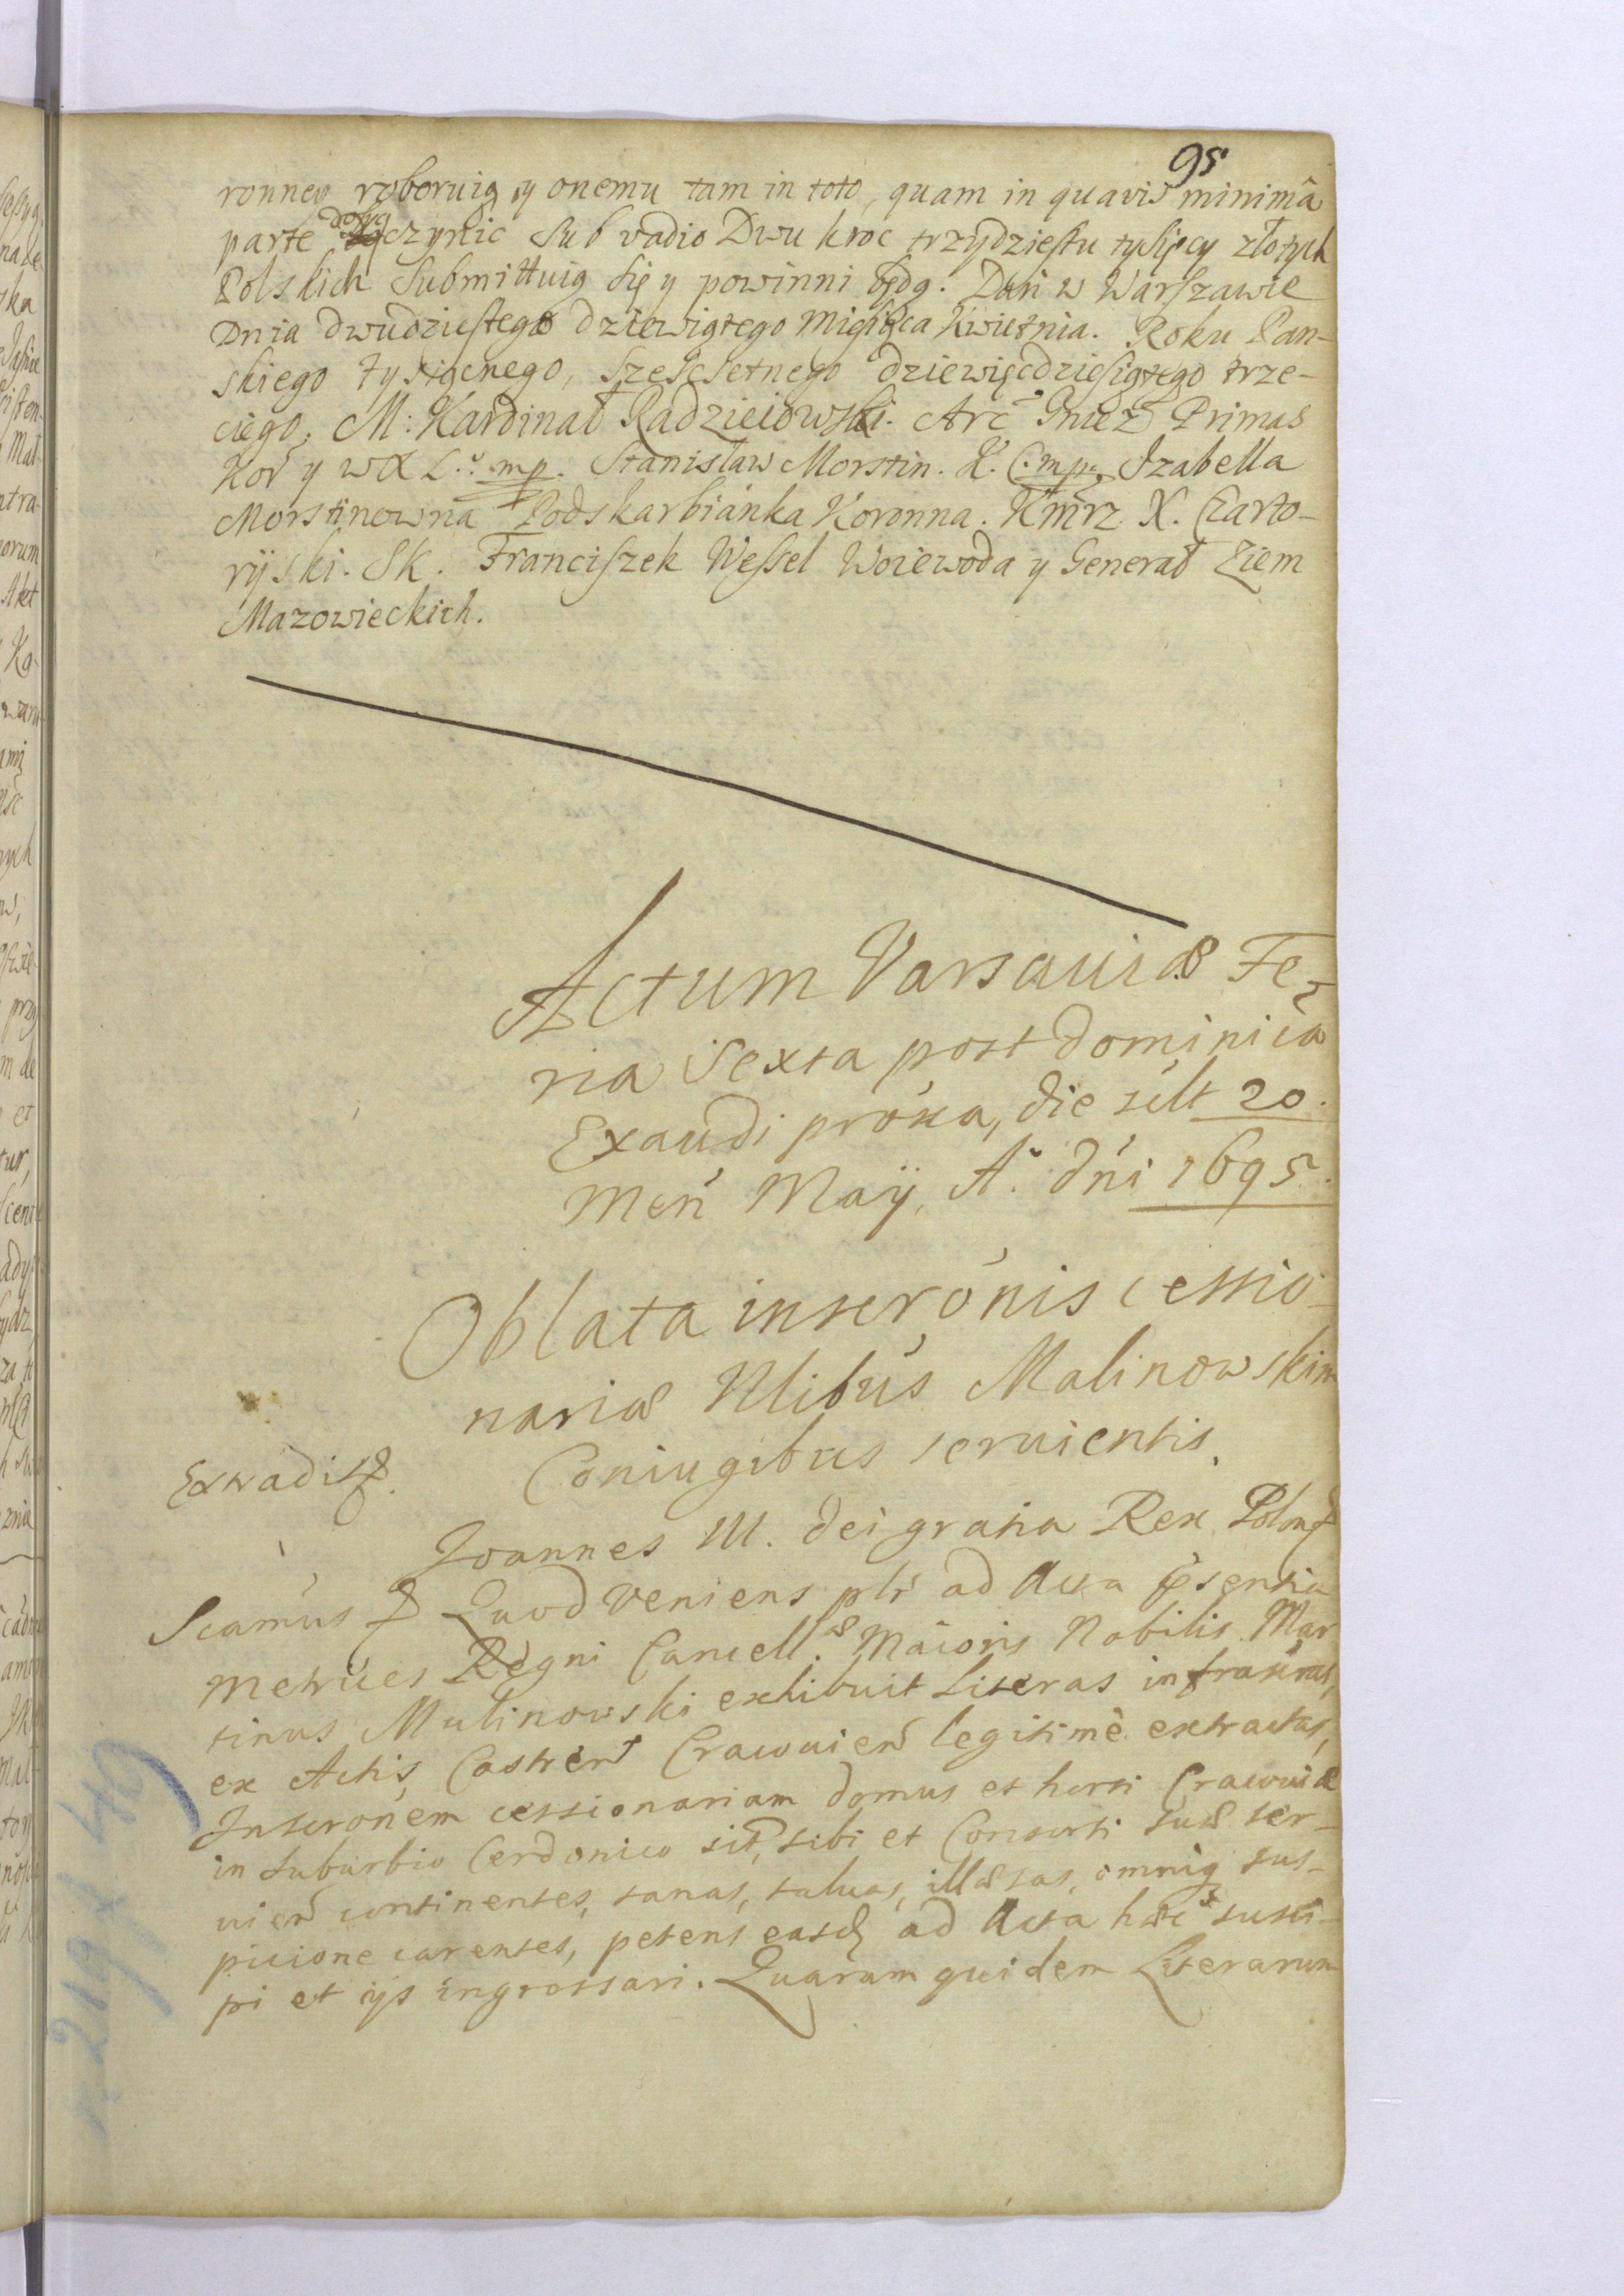 95
ronney roboruią y onemu tam in toto, quam in quavis minimâ
parte dosyc czynic sub vadio Dwu kroc trzydziestu tysięcy złotych
Polskich submittuią się y powinni będą. Dan w Warszawie
Dnia dwudziestego dziewiątego Miesiąca Kwietnia. Roku Pan-
skiego tysiącnego, szescsetnego dziewięcdziesiątego trze-
ciego. M: Kardinał Radzieiowski. Arc Gniez Primas
Kor y WXL. mp. Stanisław Morstin. K. C. mp. Izabella
Morstinowna Podskarbianka Koronna. Kmrz X. Czarto-
ryiski. SK. Franciszek Wessel Woiewoda y Generał Ziem
Mazowieckich.
Actum Varsauiæ Fe-
ria Sexta post dominica
Exaudi proxa, die scilt 20.
Men Maÿ, A. dni 1695.
Oblata inscronis cessio-
nariæ Nlibus Malinowskim
Coniugibus seruientis.
Extradit
Joannes III. dei gratia Rex Polon
Scamus Quod veniens plr ad Acta psentia
Metrices Regni Cancell. Maioris Nobilis Mar
tinus Malinowski exhibuit Literas infraxtas,
ex Actis Castren Cracouien legitimè extractas,
Inscronem cessionariam domus et horti Cracouiæ
in suburbio Cerdonico sit, sibi et Consorti suæ ser-
uien continentes, sanas, saluas, illæsas, omniq sus-
picione carentes, petens easd ad Acta hæc susci-
pi et ijs ingrossari. Quarum quidem Literarum